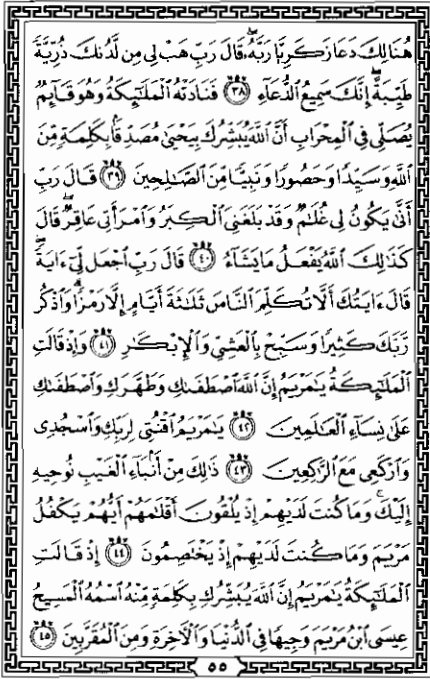 هُنَالِكَ دَعَا زَكَرِيَّا رَبَّهُۥ قَالَ رَبِّ هَبْ لِى مِن لَّدُنكَ ذُرِّيَّةً
طَيِّبَةً إِنَّكَ سَمِيعُ الدُّعَآءِ ٣٨ فَنَادَتْهُ الْمَلَٰٓئِكَةُ وَهُوَ قَآئِمٌ
يُصَلِّى فِى الْمِحْرَابِ أَنَّ اللَّهَ يُبَشِّرُكَ بِيَحْيَىٰ مُصَدِّقًۢا بِكَلِمَةٍ مِّنَ
اللَّهِ وَسَيِّدًا وَحَصُورًا وَنَبِيًّا مِّنَ الصَّٰلِحِينَ ٣٩ قَالَ رَبِّ
أَنَّىٰ يَكُونُ لِى غُلَٰمٌ وَقَدْ بَلَغَنِىَ الْكِبَرُ وَامْرَأَتِى عَاقِرٌ قَالَ
كَذَٰلِكَ اللَّهُ يَفْعَلُ مَا يَشَآءُ ٤٠ قَالَ رَبِّ اجْعَل لِّىٓ ءَايَةً
قَالَ ءَايَتُكَ أَلَّا تُكَلِّمَ النَّاسَ ثَلَٰثَةَ أَيَّامٍ إِلَّا رَمْزًا وَاذْكُر
رَّبَّكَ كَثِيرًا وَسَبِّحْ بِالْعَشِىِّ وَالْإِبْكَٰرِ ٤١ وَإِذْ قَالَتِ
الْمَلَٰٓئِكَةُ يَٰمَرْيَمُ إِنَّ اللَّهَ اصْطَفَىٰكِ وَطَهَّرَكِ وَاصْطَفَىٰكِ
عَلَىٰ نِسَآءِ الْعَٰلَمِينَ ٤٢ يَٰمَرْيَمُ اقْنُتِى لِرَبِّكِ وَاسْجُدِى
وَارْكَعِى مَعَ الرَّٰكِعِينَ ٤٣ ذَٰلِكَ مِنْ أَنۢبَآءِ الْغَيْبِ نُوحِيهِ
إِلَيْكَ وَمَا كُنتَ لَدَيْهِمْ إِذْ يُلْقُونَ أَقْلَٰمَهُمْ أَيُّهُمْ يَكْفُلُ
مَرْيَمَ وَمَا كُنتَ لَدَيْهِمْ إِذْ يَخْتَصِمُونَ ٤٤ إِذْ قَالَتِ
الْمَلَٰٓئِكَةُ يَٰمَرْيَمُ إِنَّ اللَّهَ يُبَشِّرُكِ بِكَلِمَةٍ مِّنْهُ اسْمُهُ الْمَسِيحُ
عِيسَى ابْنُ مَرْيَمَ وَجِيهًا فِى الدُّنْيَا وَالْءَاخِرَةِ وَمِنَ الْمُقَرَّبِينَ ٤٥
٥٥